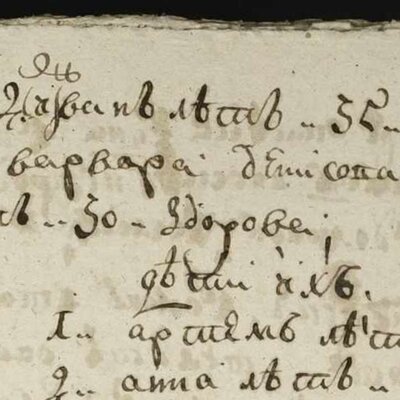 лѣтъ .. 35 ..
варвара денисова
.. 30 .. здорова
дѣти ихъ.
1 .. артемъ лѣт
2 .. анна лѣтъ ..